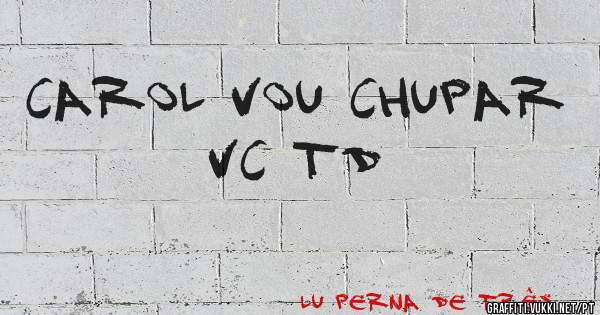 CAROL VOU CHUPAR
VC TD
LU PERNA DE TRÊS
GRAFFITI.VUKKI.NET/PT